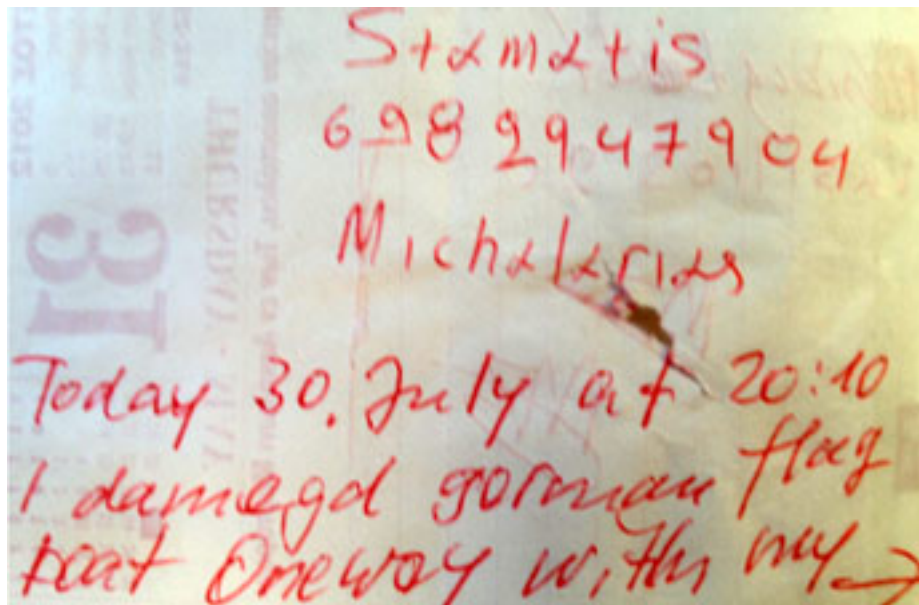 Stamatis
698 2947904
Michalarias
Today 30. July at 20:10
I damegd german flag
boat Oneway with my →
31
THERSDAY